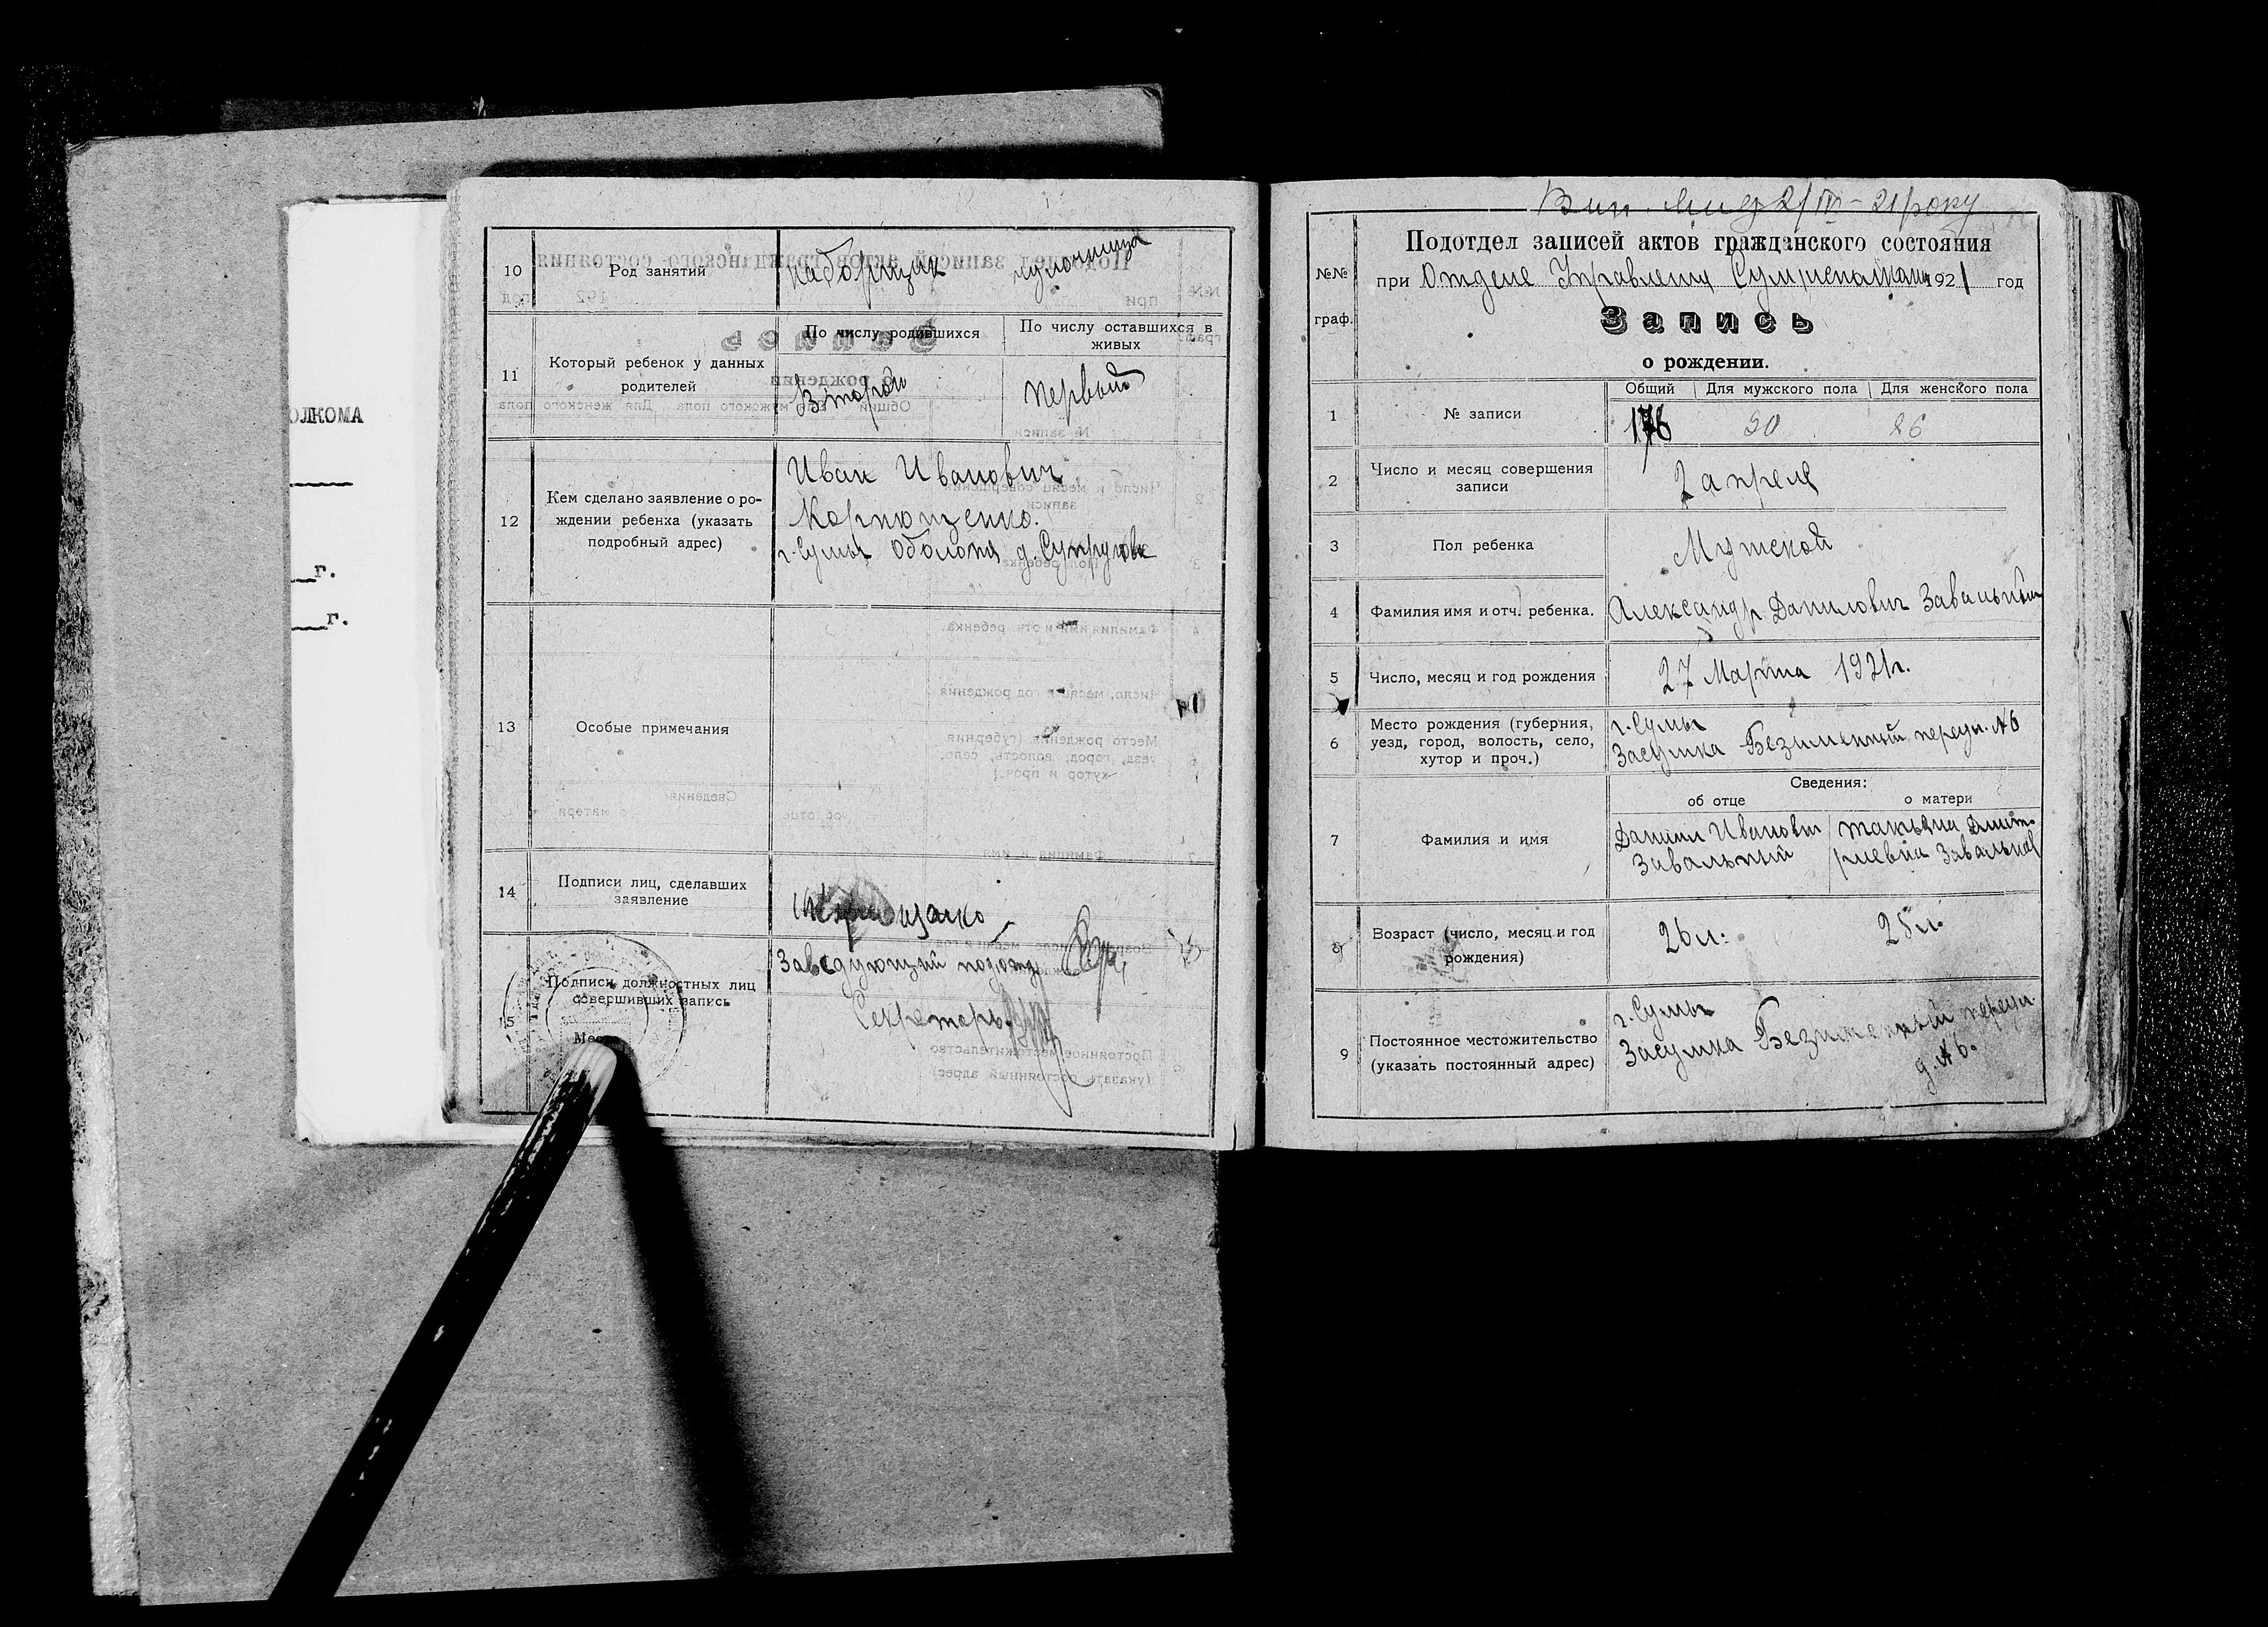 ОЛКОМА
г.
г.
10 Род занятий наборщик чулочница
11 Который ребенок у данных родителей
По числу родившихся
По числу оставшихся в живых
Второй
первый
12 Кем сделано заявление о ро-
ждении ребенка (указать
подробный адрес)
Иван Иванович
Корнющенко.
г. Сумы Оболоня д.
13 Особые примечания
14 Подписи лиц, сделавших
заявление
15 Подписи должностных лиц
совершивших запись
Заведующий подотд.
Секретарь
2/IV - 21 року
Подотдел записей актов гражданского состояния
№№ граф.
при Отделе Управления 1921 год
Запись
о рождении.
Общий Для мужского пола Для женского пола
1 № записи 176 90 86
2 Число и месяц совершения
записи
2 апреля
3 Пол ребенка Мужской
4 Фамилия имя и отч. ребенка. Александр Данилович Завальный
5 Число, месяц и год рождения 27 Марта 1921 г.
6 Место рождения (губерния,
уезд, город, волость, село,
хутор и проч.)
г. Сумы
Засумка Безименный переул. № 6
Сведения:
об отце о матери
7 Фамилия и имя
Даниил Иванович
Завальный
Татьяна Дмит-
риевна Завальная
8 Возраст (число, месяц и год
рождения)
26 л. 25 л.
9 Постоянное местожительство
(указать постоянный адрес)
г. Сумы
Засумка Безименный переул.
д. № 6.